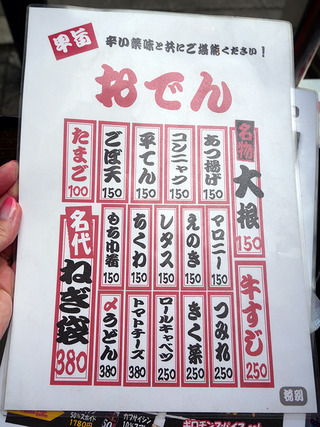 辛い薬味と共にご堪能ください！
おでん
名物 大根 150
あつ揚げ 150
コンニャク 150
平てん 150
ごぼ天 150
たまご 100
マロニー 150
えのき 150
レタス 150
ちくわ 150
もち巾着 150
名代 ねぎ袋 380
牛すじ 250
つみれ 250
きく菜 250
ロールキャベツ 250
トマトチーズ 380
〆うどん 380
1780円
カプサイシン